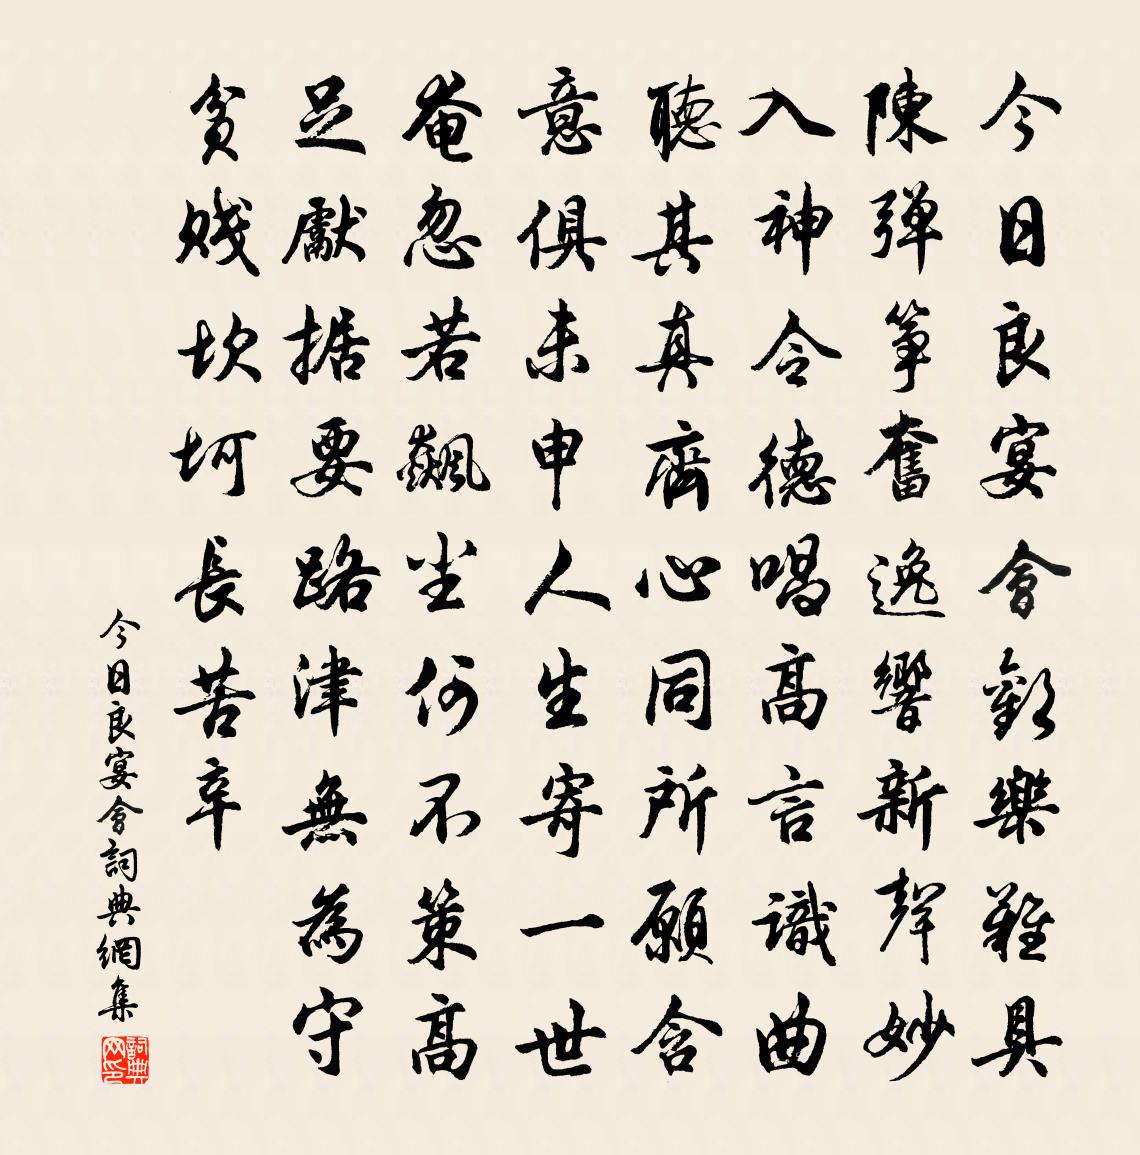 今日良宴會歡樂難具
陳彈箏奮逸響新聲妙
入神令德唱高言識曲
聽其真齊心同所願含
意俱未申人生寄一世
奄忽若飆尘何不策高
足獻据要路津無為守
貧賤坎坷長苦辛
今日良宴會詞典網集
詞典网印